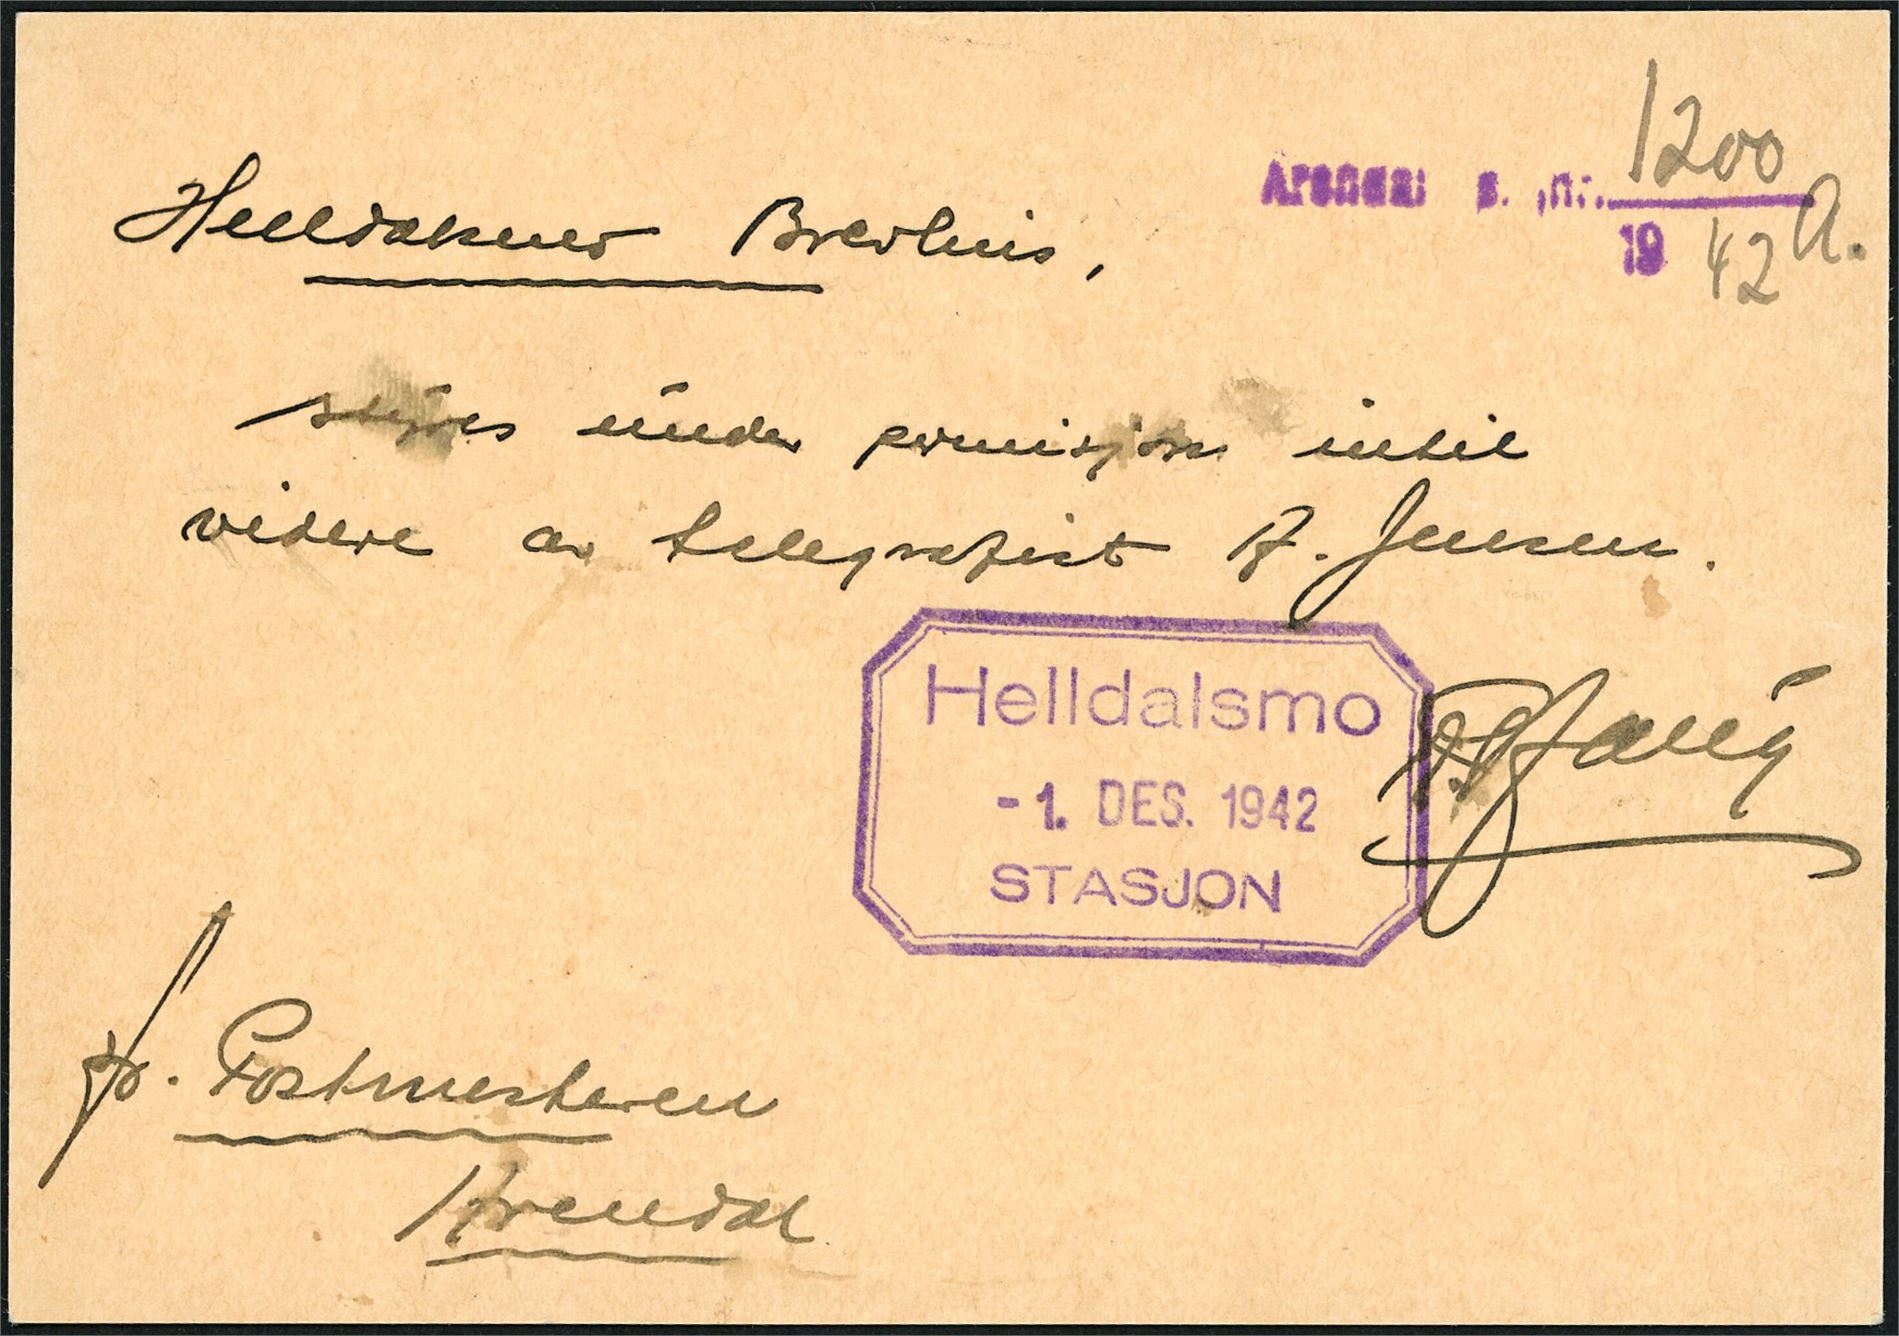 1200
Arendal p. jnr.
19 42 A.
Helldalsmo Brevhus,
støyres under permisjon intil
videre av telegrafist A. Jensen.
Helldalsmo
-1. DES. 1942
STASJON
Hr. Postmesteren
Arendal